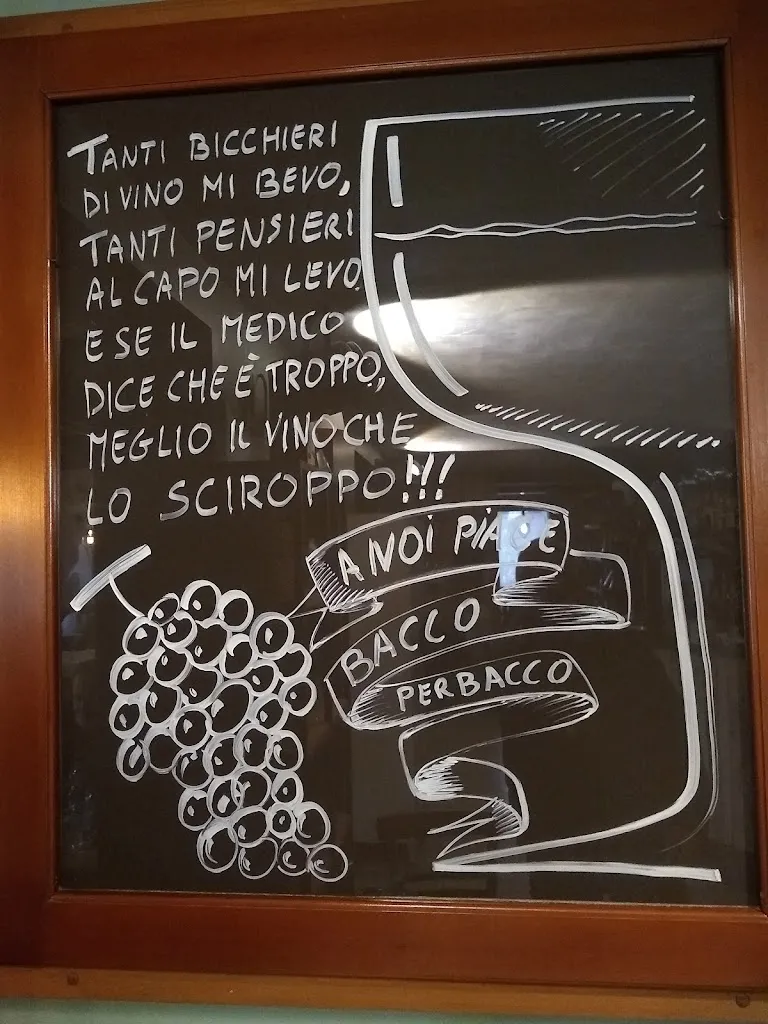 TANTI BICCHIERI
DI VINO MI BEVO,
TANTI PENSIERI
AL CAPO MI LEVO.
E SE IL MEDICO
DICE CHE È TROPPO,
MEGLIO IL VINO CHE
LO SCIROPPO!!!
A NOI PIACE
BACCO
PERBACCO